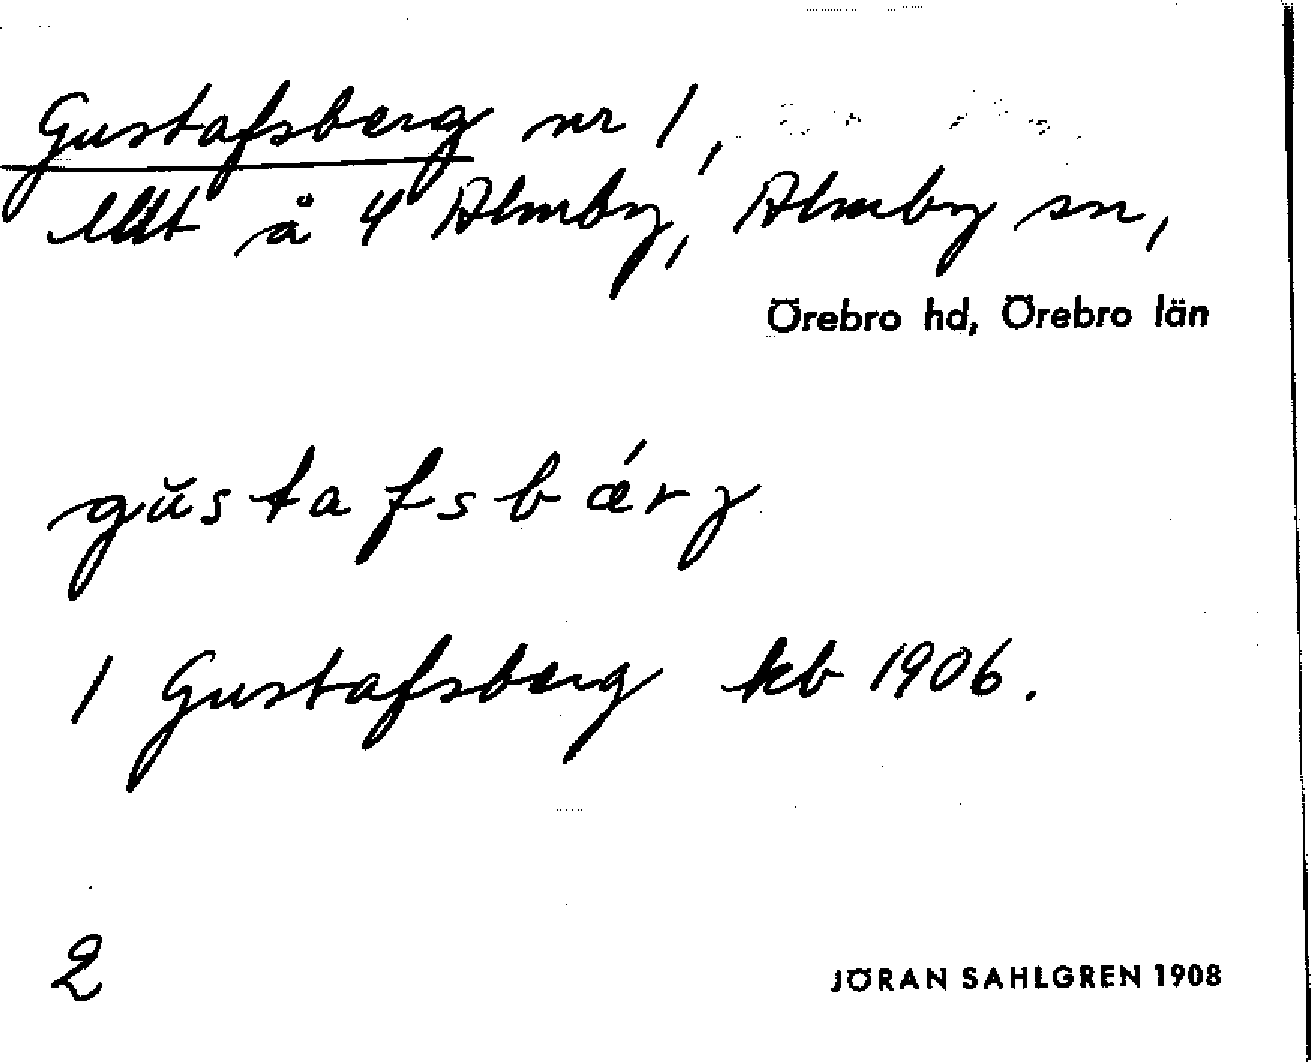 Gustafsberg nr 1,
lht å 4 Almby, Almby sn,
Örebro hd, Örebro län
gŭstafsbǽrg
1 Gustafsberg kb 1906.
2
JÖRAN SAHLGREN 1908